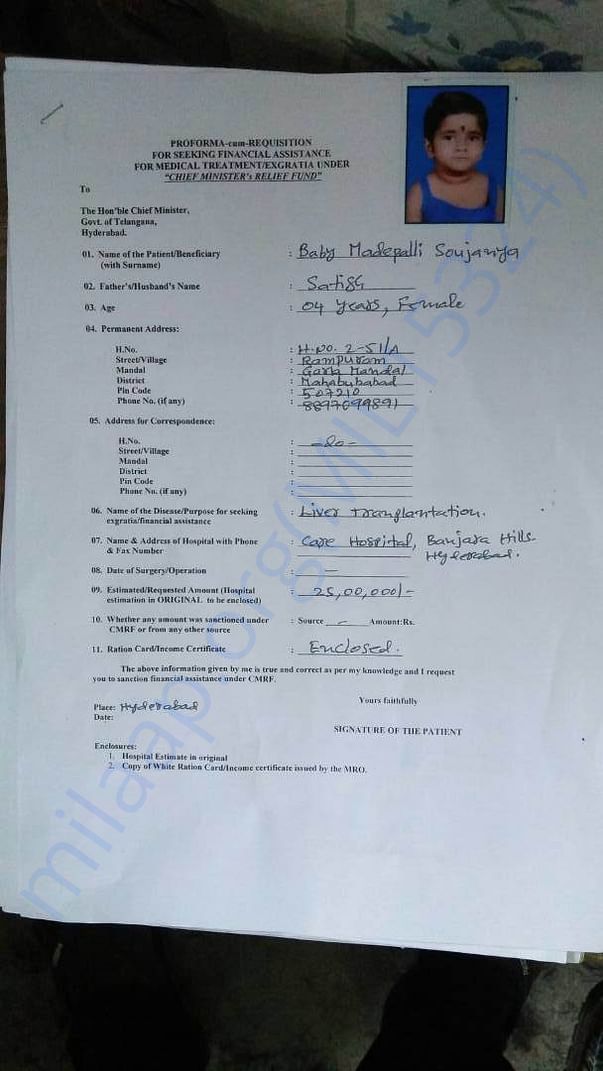 PROFORMA-cum-REQUISITION
FOR SEEKING FINANCIAL ASSISTANCE
FOR MEDICAL TREATMENT/EXGRATIA UNDER
"CHIEF MINISTER's RELIEF FUND"
To
The Hon'ble Chief Minister,
Govt. of Telangana,
Hyderabad.
01. Name of the Patient/Beneficiary : Baby Madepalli Soujanya
(with Surname)
02. Father's/Husband's Name : Satish
03. Age : 04 years, Female
04. Permanent Address:
H.No. : H.No. 2-51/A
Street/Village : Rampuram
Mandal : Garla Mandal
District : Mahabubabad
Pin Code : 507210
Phone No. (if any) : 8897099891
05. Address for Correspondence:
H.No. : -do-
Street/Village :
Mandal :
District :
Pin Code :
Phone No. (if any) :
06. Name of the Disease/Purpose for seeking : Liver Tranplantation.
exgratia/financial assistance
07. Name & Address of Hospital with Phone : Care Hospital, Banjara Hills
& Fax Number Hyderabad.
08. Date of Surgery/Operation : —
09. Estimated/Requested Amount (Hospital : 25,00,000/-
estimation in ORIGINAL to be enclosed)
10. Whether any amount was sanctioned under : Source - Amount:Rs.
CMRF or from any other source
11. Ration Card/Income Certificate : Enclosed.
The above information given by me is true and correct as per my knowledge and I request
you to sanction financial assistance under CMRF.
Yours faithfully
Place: Hyderabad
Date:
SIGNATURE OF THE PATIENT
Enclosures:
1. Hospital Estimate in original
2. Copy of White Ration Card/Income certificate issued by the MRO.
milaap.org(MIL15324)